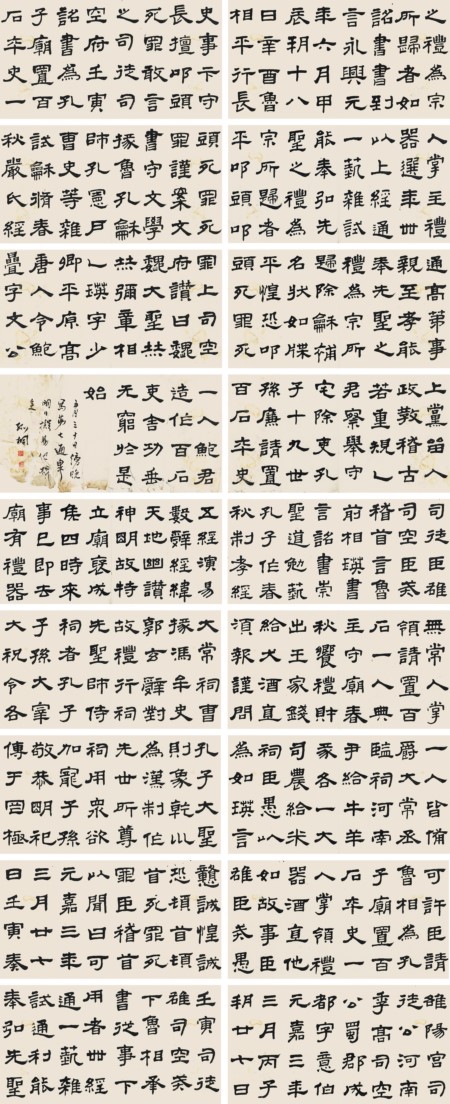 之禮為宗
所歸者如
詔書書到
言永興元
年六月甲
辰朔十八
日辛酉魯
相平行長
史事卞守
長擅叩頭
死罪敢言
之司徒司
空府壬寅
詔書為孔
子廟置百
石卒史一
人掌主禮
器選年卌
以上經通
一藝雜試
能奉弘先
聖之禮為
宗所歸者
平叩頭叩
頭死罪死
罪謹案文
書守文學
掾魯孔龢
師孔憲戶
曹史等雜
試龢脩春
秋嚴氏經
通高第事
親至孝能
奉先聖之
禮為宗所
歸除龢補
名狀如牒
平惶恐叩
頭死罪死
罪上司空
府讚曰巍
巍大聖赫
赫彌章相
乙瑛字少
卿平原高
唐人令鮑
疊字文公
上黨留人
政教稽古
若重規乙
君察舉守
宅除吏孔
子十九世
孫廉請置
百石卒史
一人鮑君
造作百石
吏舍功垂
无窮於是
始
五月三十日傍晚
寫第七通畢
明日擬易他碑
司徒臣雄
司空臣戒
稽首言魯
前相瑛書
言詔書崇
聖道勉藝
孔子作春
秋制孝經
五經演易
繫辭經緯
天地幽讚
神明故特
立廟褒成
侯四時來
事已即去
廟有禮器
無常人掌
領請置百
石一人典
主守廟春
秋饗禮財
出王家錢
給犬酒直
須報謹問
大常祠曹
掾馮牟史
郭玄辭對
故禮行祠
先聖師侍
祠者孔子
子孫大宰
大祝令各
一人皆備
爵大常丞
監祠河南
尹給牛羊
豕各一大
司農給米
祠臣愚以
為如瑛言
孔子大聖
則象乾坤
為漢制作
先世所尊
祠用眾欲
加寵子孫
敬恭明祀
傳于罔極
可許臣請
魯相為孔
子廟置百
石卒史一
人掌領禮
器酒直他
如故事臣
雄臣戒愚
戇誠惶誠
恐頓首頓
首死罪死
罪臣稽首
以聞曰可
元嘉三年
三月廿七
日壬寅奏
雒陽宮司
徒公河南
季高司空
公蜀郡成
都字意伯
元嘉三年
三月丙子
朔廿七日
壬寅司徒
雄司空戒
下魯相承
書從事下
用者卌經
通一藝雜
試通利能
奉弘先聖